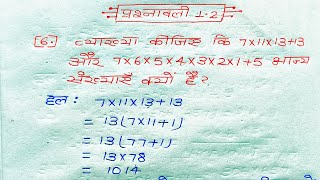 प्रश्नावली 1.2
[6.] व्याख्या कीजिए कि 7×11×13+13
और 7×6×5×4×3×2×1+5 भाज्य
संख्याएँ क्यों हैं?
हल: 7×11×13+13
= 13(7×11+1)
= 13(77+1)
= 13×78
= 1014